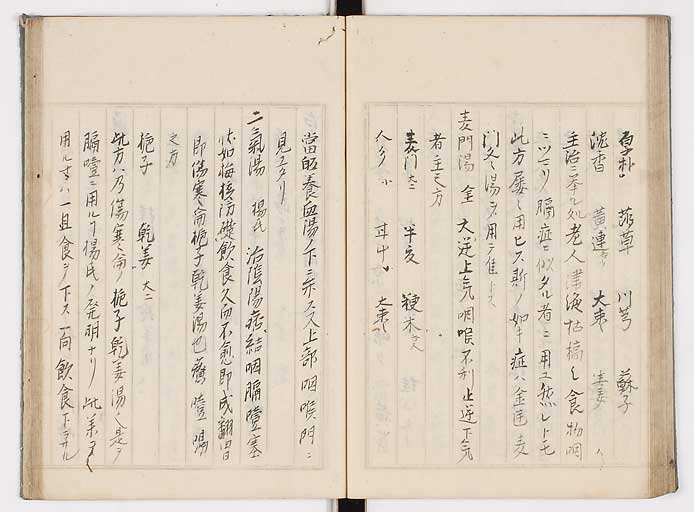 厚朴 莎草 川芎 蘇子
沈香 黄連 大棗 生姜
主治ニ挙ル処老人津液枯槁シ食物咽
ニツマリ膈症ニ似タル者ニ用ユ然レトモ
此方屡々用ヒス斯ノ如キ症ハ金匱麦
門冬湯ヲ用テ佳トス
麦門湯 金 大逆上気咽喉不利止逆下気
者主之方
麦門 大 半夏 粳米
人参 小 甘中 大棗
當的養血湯ノ下ニ示ス又上部咽喉門ニ
見エタリ
二氣湯 楊氏 治陰陽痞結咽膈噎塞
状如梅核妨礙飲食久而不愈即成翻胃
即傷寒論梔子乾姜湯也療噎膈
之方
梔子 乾姜 大
此方ハ乃傷寒論ノ梔子乾姜湯ニ是ヲ
膈噎ニ用ルヿ楊氏ノ発明ナリ此薬ヲ
用ル寸ハ一旦食ヲ下ス一向飲食下ラサル